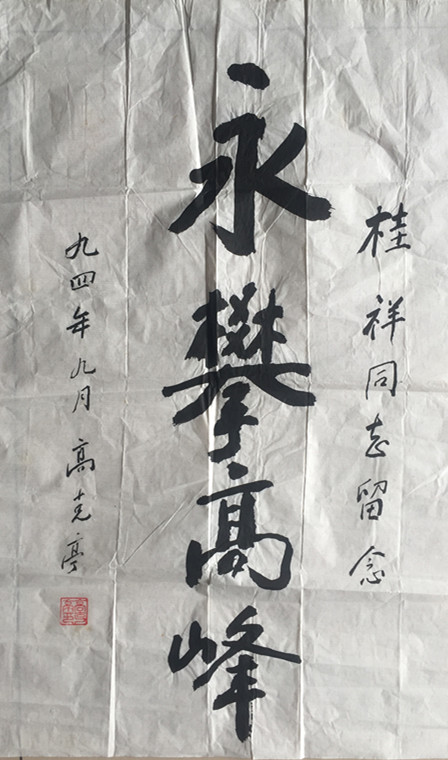 桂祥同志留念
永攀高峰
九四年九月高克亭